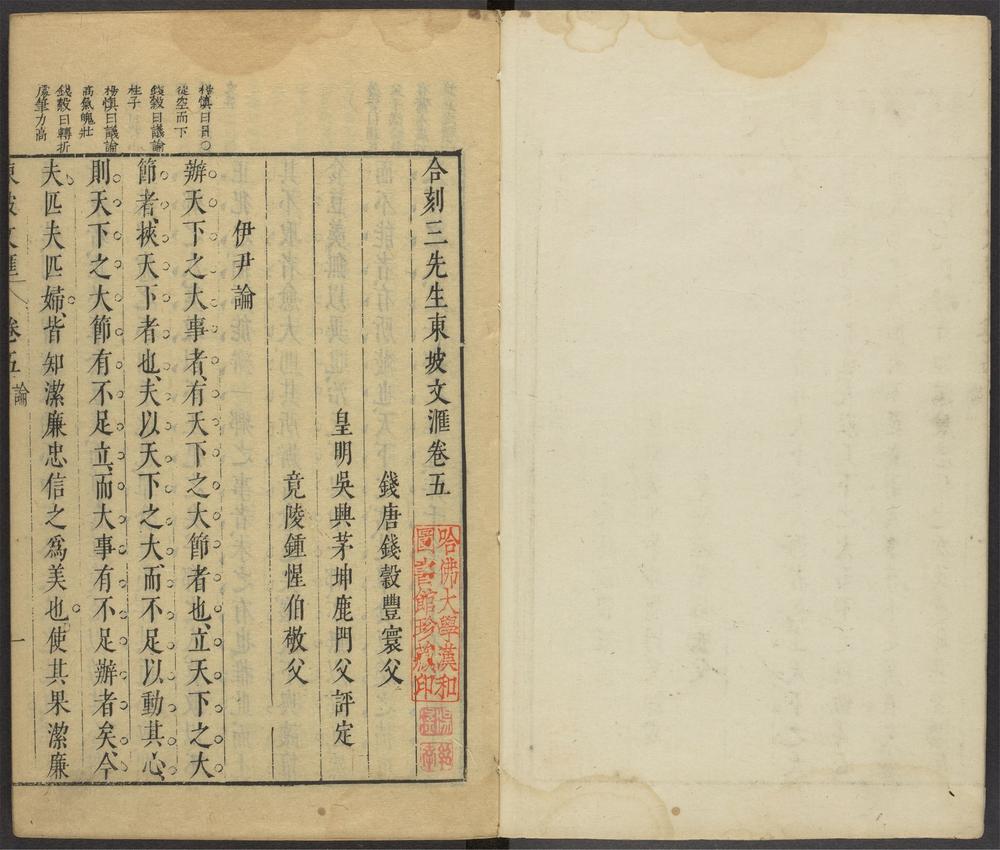 合刻三先生東坡文滙卷五
錢唐錢穀豐寰父
皇明吳興茅坤鹿門父評定
竟陵鍾惺伯敬父
伊尹論
辦天下之大事者、有天下之大節者也、立天下之大
節者、狹天下者也、夫以天下之大而不足以動其心、
則天下之大節有不足立、而大事有不足辦者矣、今
夫匹夫匹婦、皆知潔廉忠信之爲美也、使其果潔廉
楊慎曰
從空而下
錢穀曰議論
柱子
楊慎曰議論
高氣魄壯
錢穀曰轉折
處筆力高
東坡文滙
卷五
論
一
哈佛大學漢和
圖書館珍藏印